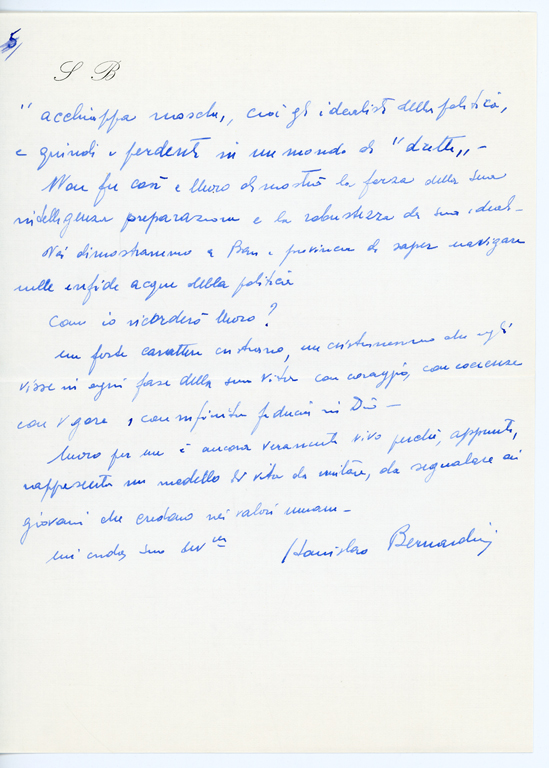 5
S B
" acchiappa mosche,, cioè gli idealisti della politica,
e quindi i perdenti in un mondo di "dritti,, -
Non fu così e Moro dimostrò la forza della sua
intelligenza preparazione e la robustezza dei suoi ideali -
Noi dimostrammo a Bari e provincia di saper navigare
nelle infide acque della politica
Come io ricorderò Moro?
un forte carattere cristiano, un cristianesimo che egli
visse in ogni fase della sua vita con coraggio, con coerenza
con vigore, con infinita fiducia in Dio -
Moro per me è ancora veramente vivo perché, appunto,
rappresenta un modello di vita da imitare, da segnalare ai
giovani che credono nei valori umani -
mi creda suo Stanislao Bernardini